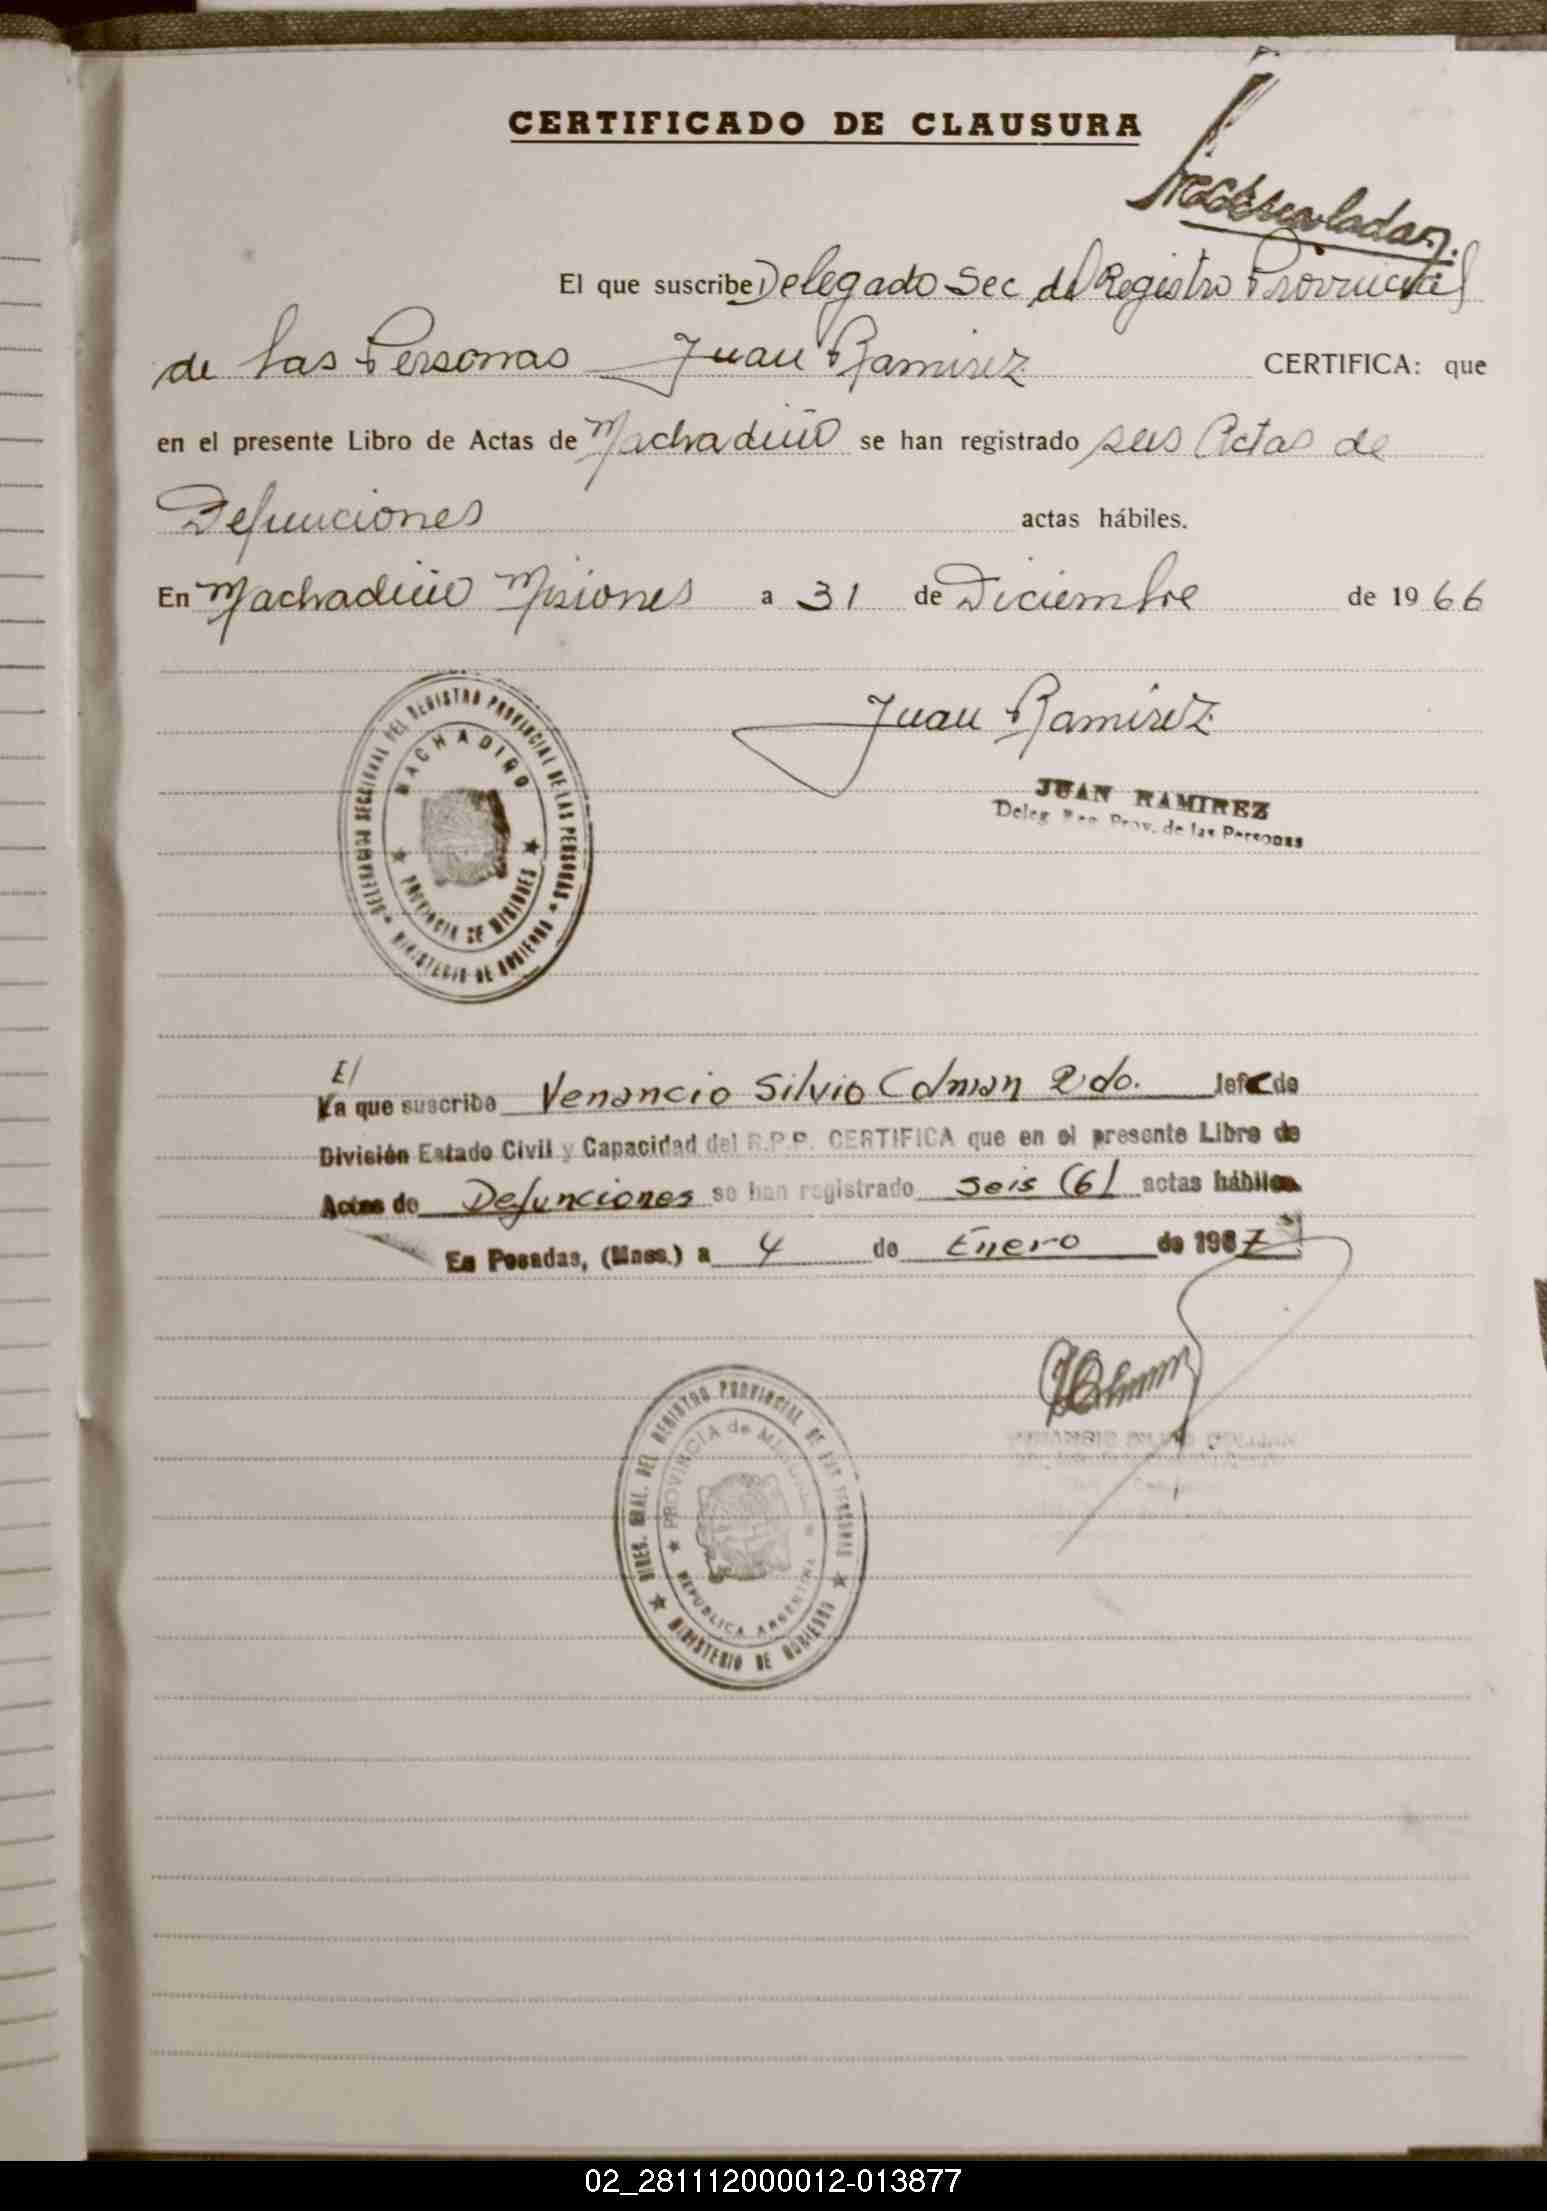 CERTIFICADO DE CLAUSURA
El que suscribe Delegado Sec del Registro Provincial
de las Personas Juan Ramirez CERTIFICA: que
en el presente Libro de Actas de Machadiño se han registrado seis Actas de
Defunciones actas hábiles.
En Machadiño Misiones a 31 de Diciembre de 1966
Juan Ramirez
JUAN RAMIREZ
Deleg. Reg. Prov. de las Personas
DELEGACION SECCIONAL DEL REGISTRO PROVINCIAL DE LAS PERSONAS
MINISTERIO DE GOBIERNO
MACHADIÑO
PROVINCIA DE MISIONES
El
La que suscribe Venancio Silvio Colman 2do. Jefe de
División Estado Civil y Capacidad del R.P.P. CERTIFICA que en el presente Libro de
Actas de Defunciones se han registrado seis (6) actas hábiles.
En Posadas, (Mnes.) a 4 de Enero de 1967
DIREC. GRAL. DEL REGISTRO PROVINCIAL DE LAS PERSONAS
MINISTERIO DE GOBIERNO
PROVINCIA de MISIONES
REPUBLICA ARGENTINA
02_281112000012-013877